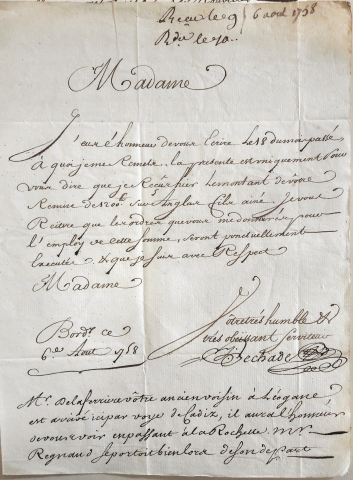 Recu le 9 6 aout 1758
Rdu le 10
Madame
J'eus l'honneur de vous ecrire Le 18 du m passé
à quoi je me Remets. la presente est uniquement Pour
vous dire que je Reçus hier Le montant de vôtre
Remise de 1200 Sur Anglas fils ainé. Je vous
Reitre que les ordres que vous me donnerés pour
l'employ de Cette Somme, Seront ponctuellement
Executés. & que je Suis avec Respect
Madame
Bordx ce
6e Aout 1758
Vôtre trés humble &
trés obeissant Serviteur
Bechade
Mr. Delaferriere vôtre ancien voisin à Léogane
est arrivé ici par voye de Cadiz, il aura l'honneur
de vous voir en passant à la Rochelle. Mr
Regnaud se portoit bien lors de son depart